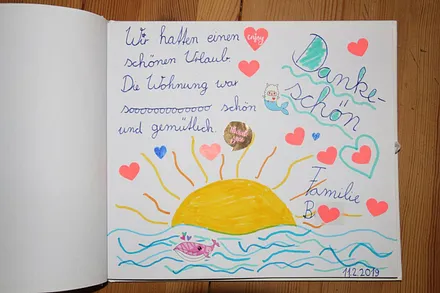 Wir hatten einen
schönen Urlaub.
Die Wohnung war
sooooooooooo schön
und gemütlich.
enjoy
Danke-
schön
Familie
B
11.2.2019